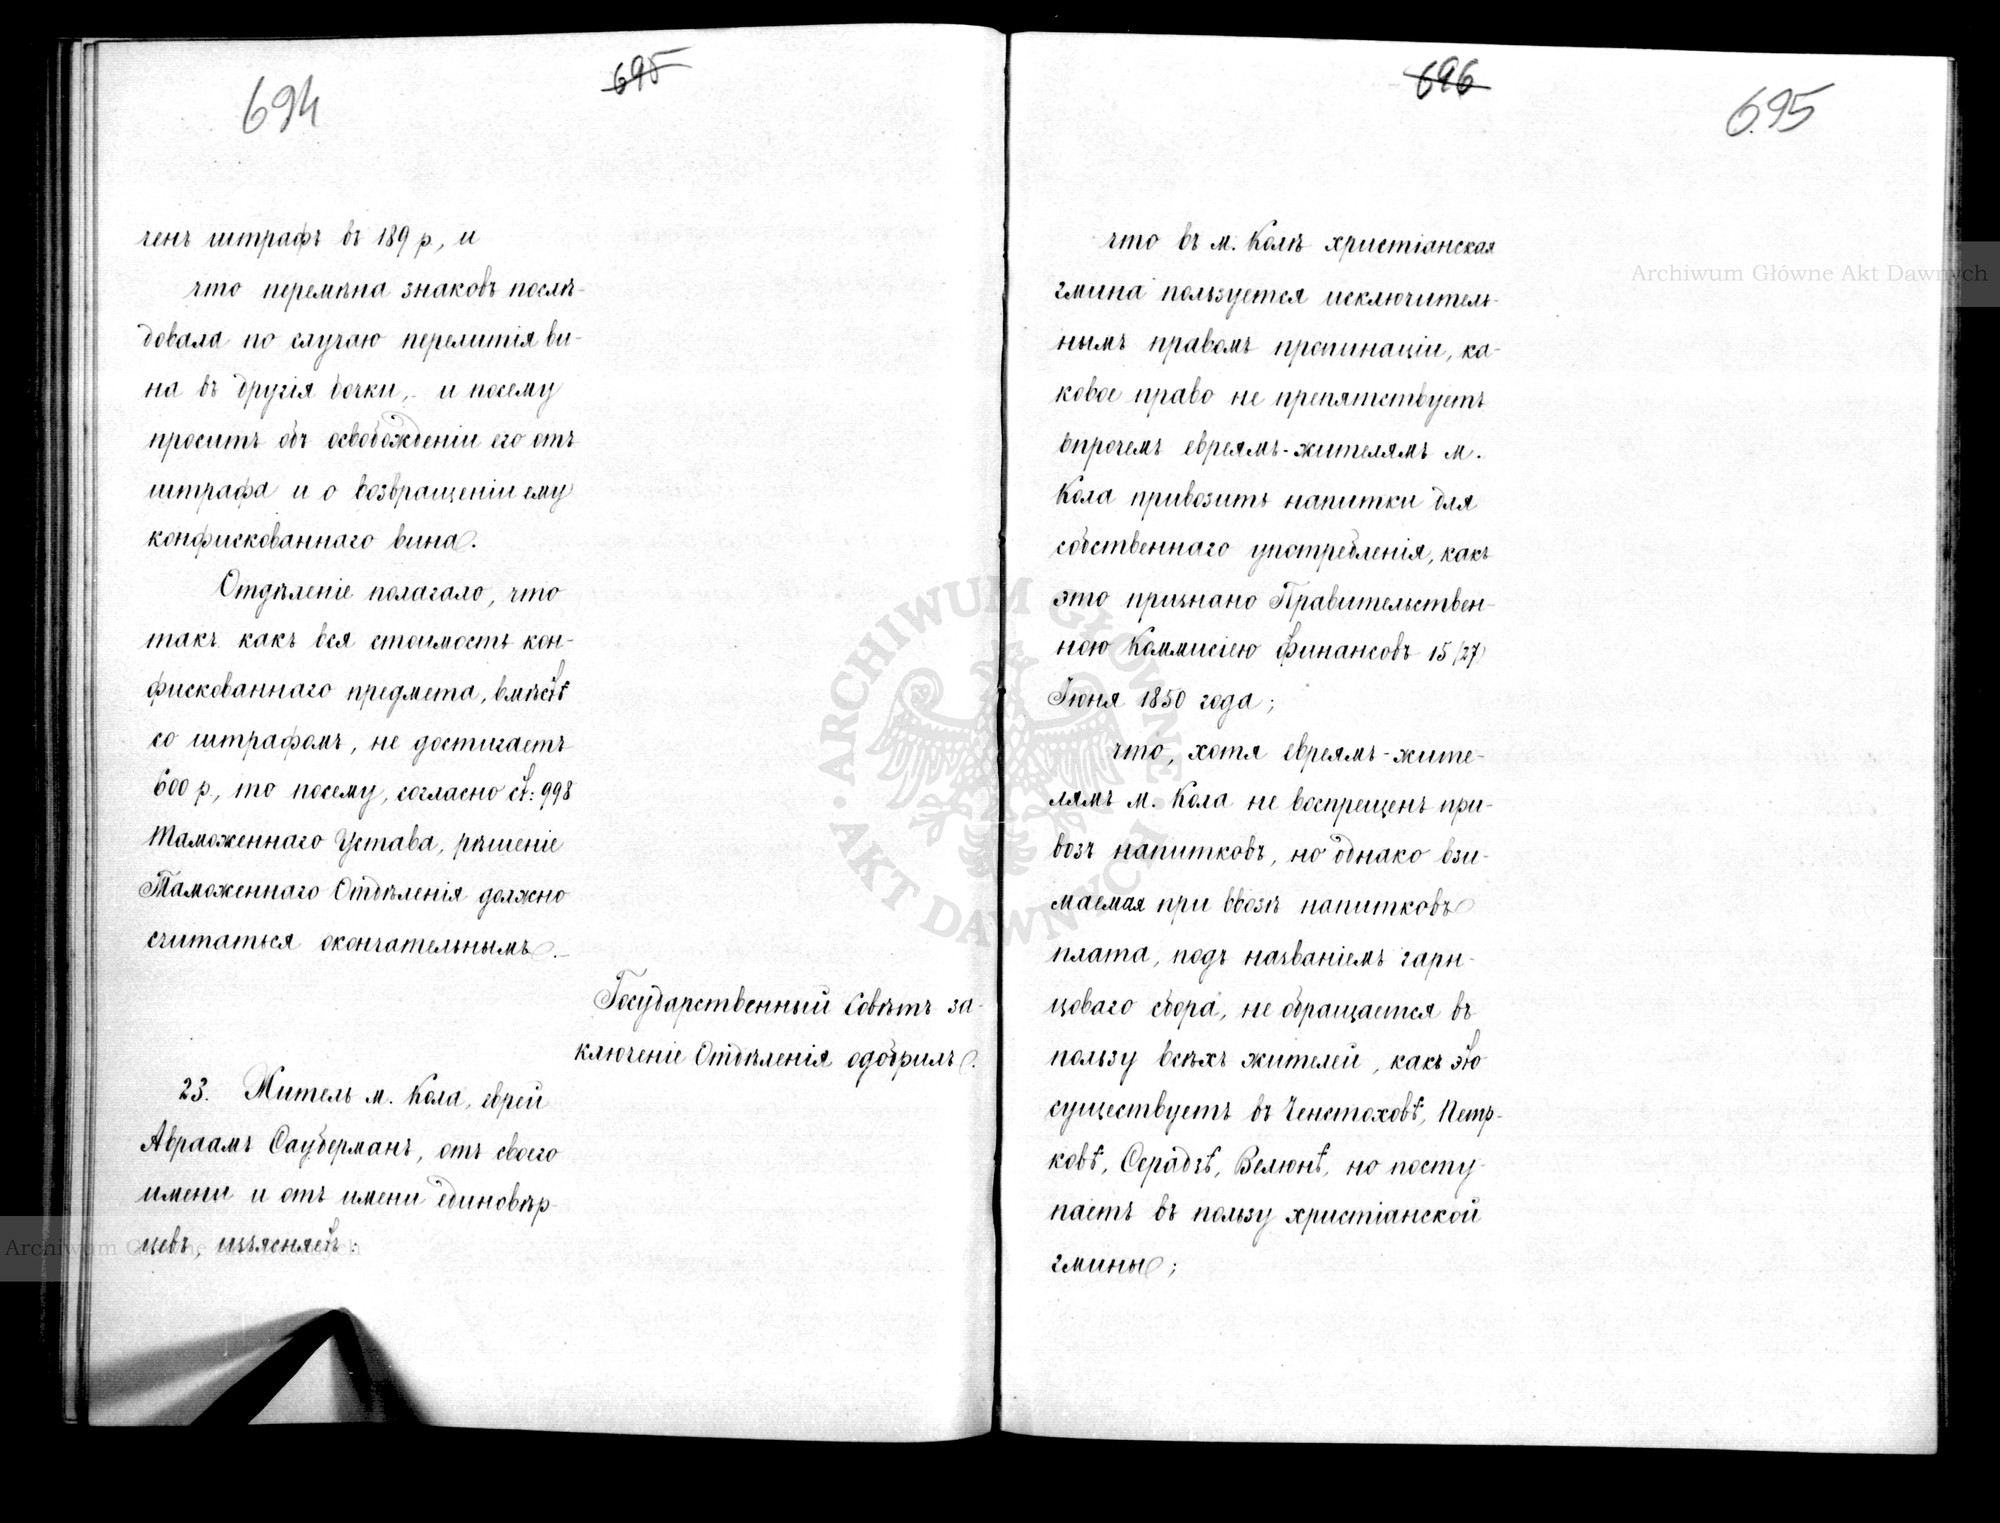 694
695
ченъ штрафъ въ 189 р., и
что перемѣна знаковъ послѣ-
довала по случаю перелитія ви-
на въ другія бочки, и посему
проситъ объ освобожденіи его отъ
штрафа и о возвращеніи ему
конфискованнаго вина.
Отдѣленіе полагало, что
такъ какъ вся стоимость кон-
фискованнаго предмета, вмѣстѣ
со штрафомъ, не достигаетъ
600 р., то посему, согласно ст: 998
Таможеннаго Устава, рѣшеніе
Таможеннаго Отдѣленія должно
считаться окончательнымъ.
Государственный Совѣтъ за-
ключеніе Отдѣленія одобрилъ.
23. Житель м. Кола, еврей
Авраамъ Сауберманъ, отъ своего
имени и отъ имени единовѣр-
цевъ, изъясняетъ:
696
695
что въ м. Колѣ христіанская
гмина пользуется исключитель-
нымъ правомъ пропинаціи, ка-
ковое право не препятствуетъ
впрочемъ евреямъ-жителямъ м.
Кола привозить напитки для
собственнаго употребленія, какъ
это признано Правительствен-
ною Коммисіею Финансовъ 15/27
Іюня 1850 года;
что, хотя евреямъ-жите-
лямъ м. Кола не воспрещенъ при-
возъ напитковъ, но однако взи-
маемая при ввозѣ напитковъ
плата, подъ названіемъ гарн-
цоваго сбора, не обращается въ
пользу всѣхъ жителей, какъ это
существуетъ въ Ченстоховѣ, Петр-
ковѣ, Серадзѣ, Велюнѣ, но посту-
паетъ въ пользу христіанской
гмины;
Archiwum Główne Akt Dawnych
Archiwum Główne Akt Dawnych
ARCHIWUM GŁÓWNE AKT DAWNYCH